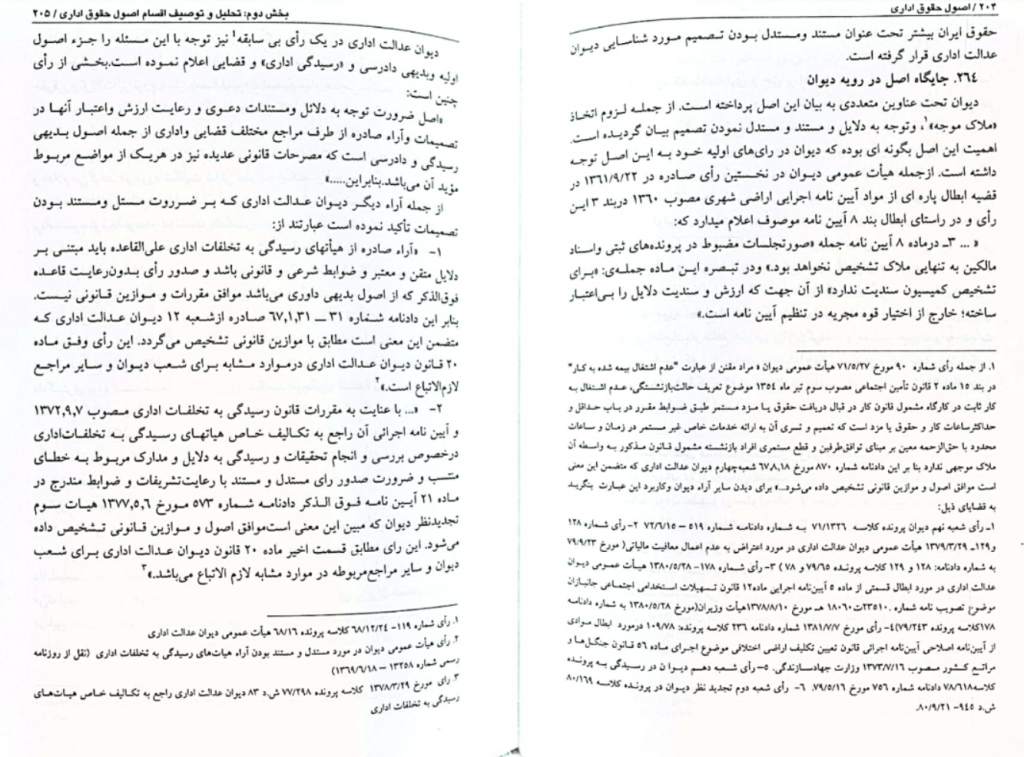 ۲۰۴ / اصول حقوق اداری
حقوق ایران بیشتر تحت عنوان مستند ومستدل بودن تصمیم مورد شناسایی دیوان
عدالت اداری قرار گرفته است.
۲٦٤. جایگاه اصل در رویه دیوان
دیوان تحت عناوین متعددی به بیان این اصل پرداخته است. از جمله لزوم اتخاذ
«ملاک موجه»۱، وتوجه به دلایل و مستند و مستدل نمودن تصمیم بیان گردیده است.
اهمیت این اصل بگونه ای بوده که دیوان در رای‌های اولیه خود به این اصل توجه
داشته است. ازجمله هیأت عمومی دیوان در نخستین رأی صادره در ۱۳۶۱/۹/۲۲ در
قضیه ابطال پاره ای از مواد آیین نامه اجرایی اراضی شهری مصوب ۱۳۶۰ دربند ۳ این
رأی و در راستای ابطال بند ۸ آیین نامه موصوف اعلام میدارد که:
« ... ۳ـ درماده ۸ آیین نامه جمله «صورتجلسات مضبوط در پرونده‌های ثبتی واسناد
مالکین به تنهایی ملاک تشخیص نخواهد بود.» ودر تبصره این ماده جمله‌ی: «برای
تشخیص کمیسیون سندیت ندارد» از آن جهت که ارزش و سندیت دلایل را بی‌اعتبار
ساخته؛ خارج از اختیار قوه مجریه در تنظیم آیین نامه است.»
۱. از جمله رأی شماره ۹۰ مورخ ۷۱/۵/۲۷ هیأت عمومی دیوان « مراد مقنن از عبارت "عدم اشتغال بیمه شده به کار"
در بند ۱۵ ماده ۲ قانون تأمین اجتماعی مصوب سوم تیر ماه ۱۳۵۴ موضوع تعریف حالت‌بازنشستگی، عدم اشتغال به
کار ثابت در کارگاه مشمول قانون کار در قبال دریافت حقوق یا مزد مستمر طبق ضوابط مقرر در باب حداقل و
حداکثرساعات کار و حقوق یا مزد است که تعمیم و تسری آن به ارائه خدمات خاص غیر مستمر در زمان و ساعات
محدود با حق‌الزحمه معین بر مبنای توافق‌طرفین و قطع مستمری افراد بازنشسته مشمول قانون مذکور به واسطه آن
ملاک موجهی ندارد بنا بر این دادنامه شماره ۸۷۰ مورخ ۶۷،۸،۱۸ شعبه‌چهارم دیوان عدالت اداری که متضمن این معنی
است موافق اصول و موازین قانونی تشخیص داده می‌شود...» برای دیدن سایر آراء دیوان وکاربرد این عبارت بنگرید
به قضایای ذیل:
۱ـ رأی شعبه نهم دیوان پرونده کلاسه ۷۱/۱۳۲۶ به شماره دادنامه ۵۱۹ – ۷۲/۶/۱۵ ۲- رأی شماره ۱۲۸
و۱۲۹ـ ۱۳۷۹/۳/۲۹ هیأت عمومی دیوان عدالت اداری در مورد اعتراض به عدم اعمال معافیت مالیاتی( مورخ ۷۹/۹/۲۳
به شماره دادنامه: ۱۲۸ و ۱۲۹ کلاسه پرونده ۷۹/۶۵ و ۷۸ ) ۳- رأی شماره ۱۷۸- ۱۳۸۰/۵/۲۸ هیأت عمومی دیوان
عدالت اداری در مورد ابطال قسمتی از ماده ۵ آیین‌نامه اجرایی ماده۱۲ قانون تسهیلات استخدامی اجتماعی جانبازان
موضوع تصویب نامه شماره ۲۳۵۱۰.ت۱۸۰۶۰ هـ مورخ ۱۳۷۸/۸/۱۰هیأت وزیران(مورخ ۱۳۸۰/۵/۲۸ به شماره دادنامه
۱۷۸کلاسه پرونده ۷۹/۲۴۳)۴- رأی مورخ ۱۳۸۱/۷/۷ شماره دادنامه ۲۳۶ کلاسه پرونده: ۱۰۹/۷۸ درمورد ابطال موادی
از آیین‌نامه اصلاحی آیین‌نامه اجرائی قانون تعیین تکلیف اراضی اختلافی موضوع اجرای ماده ۵۶ قانون جنگل‌ها و
مراتع کشور مصوب ۱۳۷۳/۷/۱۶ وزارت جهادسازندگی. ۵- رأی شعبه دهم دیوان در رسیدگی به پرونده
کلاسه۷۸/۶۱۸ دادنامه شماره ۷۵۶ مورخ ۷۹/۵/۱۶. ۶- رأی شعبه دوم تجدید نظر دیوان در پرونده کلاسه ۸۰/۱۶۹
ش.د ۹۴۵- ۸۰/۹/۲۱.
بخش دوم: تحلیل و توصیف اقسام اصول حقوق اداری / ۲۰۵
دیوان عدالت اداری در یک رأی بی سابقه۱ نیز توجه با این مسئله را جزء اصول
اولیه وبدیهی دادرسی و «رسیدگی اداری» و قضایی اعلام نموده است.بخشی از رأی
چنین است:
«اصل ضرورت توجه به دلائل ومستندات دعوی و رعایت ارزش واعتبار آنها در
تصمیمات وآراء صادره از طرف مراجع مختلف قضایی واداری از جمله اصول بدیهی
رسیدگی و دادرسی است که مصرحات قانونی عدیده نیز در هریک از مواضع مربوط
مؤید آن می‌باشد.بنابراین.....»
از جمله آراء دیگر دیوان عدالت اداری که بر ضرروت مستل ومستند بودن
تصمیمات تأکید نموده است عبارتند از:
۱- «آراء صادره از هیأتهای رسیدگی به تخلفات اداری علی‌القاعده باید مبتنی بر
دلایل متقن و معتبر و ضوابط شرعی و قانونی باشد و صدور رأی بدون‌رعایت قاعده
فوق‌الذکر که از اصول بدیهی داوری می‌باشد موافق مقررات و موازین قانونی نیست.
بنابر این دادنامه شماره ۳۱ – ۶۷,۱,۳۱ صادره ازشعبه ۱۲ دیوان عدالت اداری که
متضمن این معنی است مطابق با موازین قانونی تشخیص می‌گردد. این رأی وفق ماده
۲۰ قانون دیوان عدالت اداری درموارد مشابه برای شعب دیوان و سایر مراجع
لازم‌الاتباع است.»۲
۲- «... با عنایت به مقررات قانون رسیدگی به تخلفات اداری مصوب ۱۳۷۲,۹,۷
و آیین نامه اجرائی آن راجع به تکالیف خاص هیاتهای رسیدگی به تخلفات‌اداری
درخصوص بررسی و انجام تحقیقات و رسیدگی به دلایل و مدارک مربوط به خطای
منتسب و ضرورت صدور رای مستدل و مستند با رعایت‌تشریفات و ضوابط مندرج در
ماده ۲۱ آیین نامه فوق الذکر دادنامه شماره ۵۷۳ مورخ ۱۳۷۷,۵,۶ هیات سوم
تجدیدنظر دیوان که مبین این معنی است‌موافق اصول و موازین قانونی تشخیص داده
می‌شود. این رای مطابق قسمت اخیر ماده ۲۰ قانون دیوان عدالت اداری برای شعب
دیوان و سایر مراجع‌مربوطه در موارد مشابه لازم الاتباع می‌باشد.»۳
۱. رأی شماره ۱۱۹- ۶۸/۱۲/۲۴ کلاسه پرونده ۶۸/۱۶ هیأت عمومی دیوان عدالت اداری
۲. رأی هیأت عمومی دیوان در مورد مستدل و مستند بودن آراء هیات‌های رسیدگی به تخلفات اداری (نقل از روزنامه
رسمی شماره ۱۳۲۵۸ – ۱۳۶۹/۶/۱۸)
۳. رای مورخ ۱۳۷۸/۳/۲۹ کلاسه پرونده ۷۷/۲۹۸ ش.د ۸۳ دیوان عدالت اداری راجع به تکالیف خاص هیات‌های
رسیدگی به تخلفات اداری